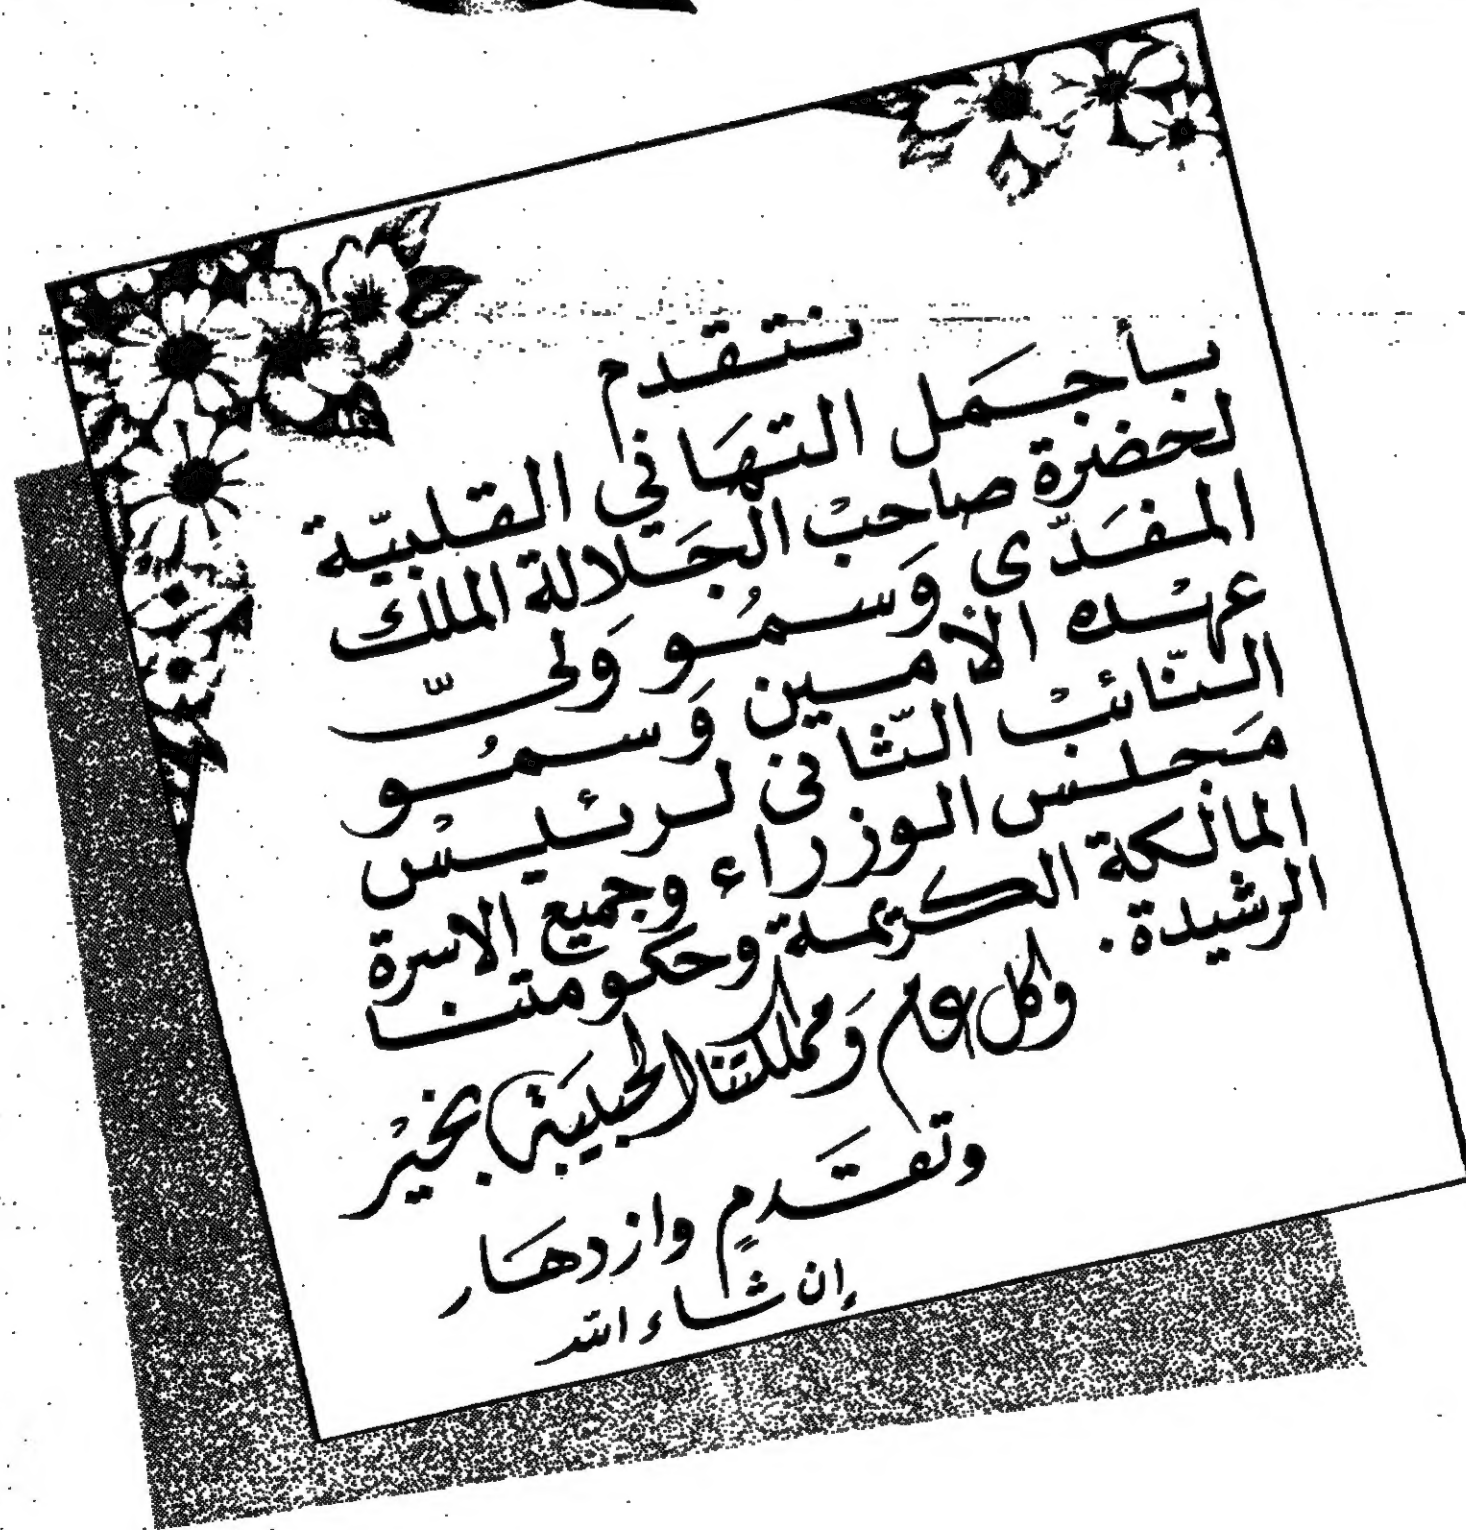 نتقدم
بأجمَل التهَاني القلبيّة
لحضرة صاحبْ الجَلالة الملك
المفَدّى وَسمُو وَليّ
عهْده الأمين وَسمُو
النّائبْ الثّاني لرئيسْ
مَجلس الوزراء وجميع الاسرة
المالكة الكريمة وحكومتنا
الرشيدة.
وكل عام وَمملكتنا الحبيبَة بخيْر
وتقَدمٍ وازدهَار
إن شاء الله